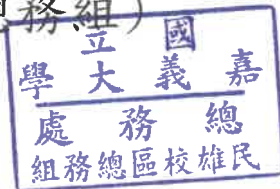 務組）
國立
嘉義大學
總務處
民雄校區總務組